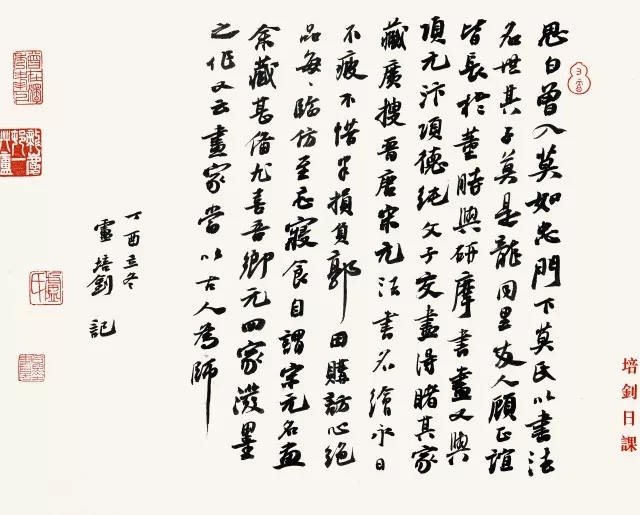 培釗日課
思白曾入莫如忠門下莫氏以書法
名世其子莫是龍同里友人顧正誼
皆長於董時與研摩書畫又與
項元汴項德純父子交盡得睹其家
藏廣搜晉唐宋元法書名繪永日
不疲不惜半損負郭田購訪心絕
品每〻臨仿至忘寢食自謂宋元名画
余藏甚備尤喜吾鄉元四家潑墨
之作又云畫家當以古人為師
丁酉立冬
盧培釗記